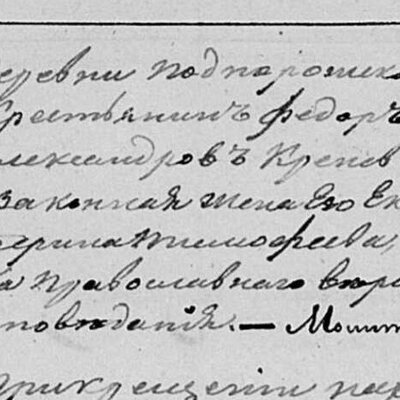 еревни Подпорожск
Крестьянинъ Федоръ
лександровъ Крепев
Законная жена Его Ек
терина Тимофеева,
а Православнаго вер
поведания. — Молит
При крещении нах